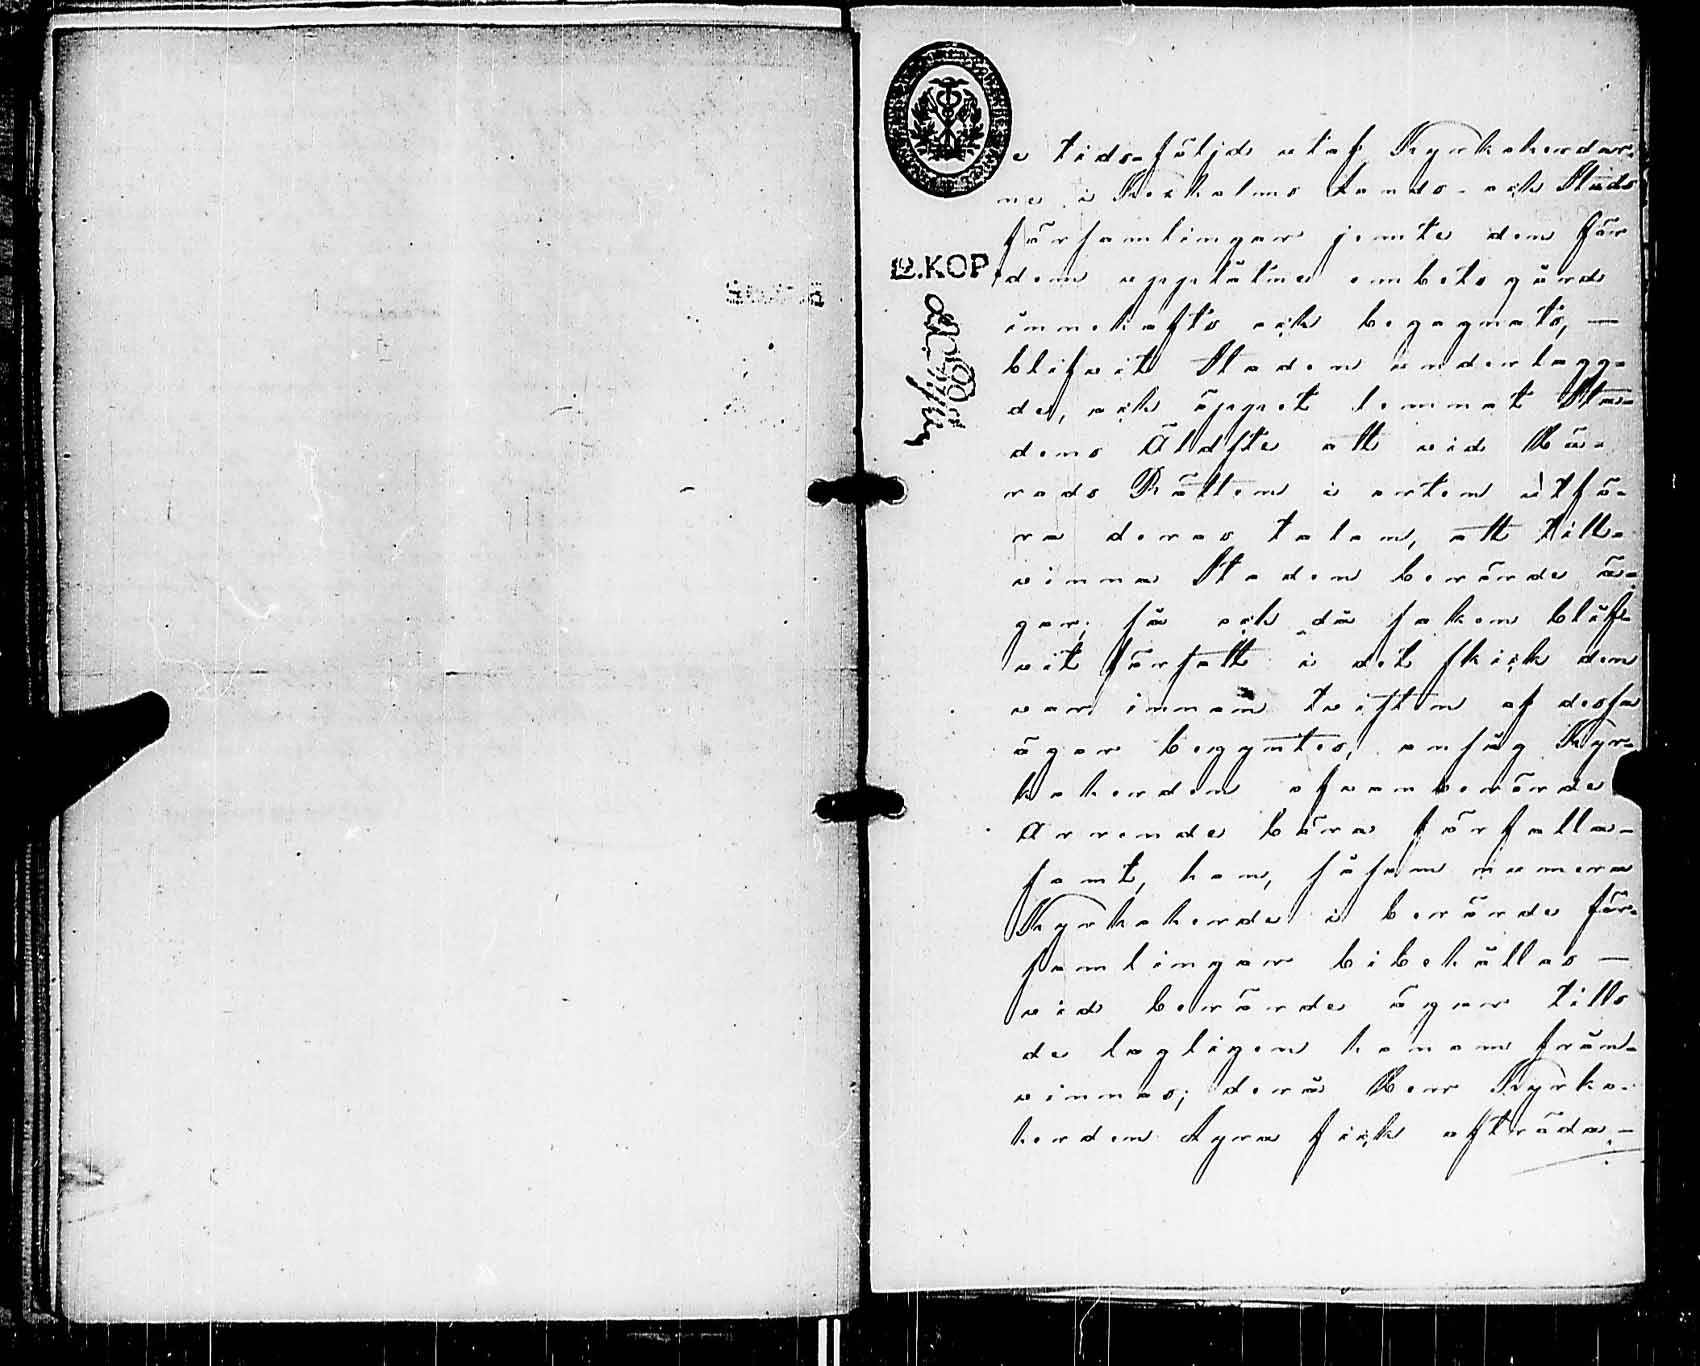 e tids-följd utaf Kyrkoherdar-
ne i Kexholms Lands- och Stads
församlingar jemte dem för
dem upplåtne embetsgård
innehafts och begagnats, —
blifvit Staden underlagg-
de, och öppet lemnat Sta-
dens Äldste att vid Hä-
rads Rätten i orten utfö-
ra deras talan, att till-
vinna Staden berörde ä-
gor; så och då saken blif-
vit försatt i det skick den
var innan tvisten af dessa
ägor begyntes, ansåg Kyr-
koherden ofvanberörde
Arrende böra förfalla —
samt, han, såsom numera
Kyrkoherde i berörde för-
samlingar bibehållas —
vid berörde ägor tills
de lagligen honom från-
vinnas; derå Herr Kyrko-
herden Agra fick afträda. —
12.KOP